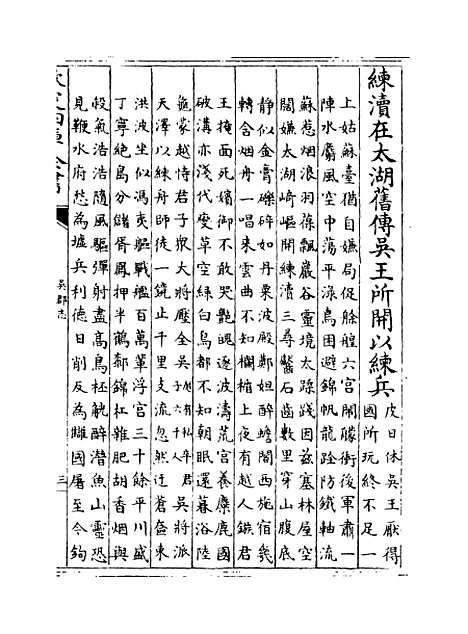 練瀆在太湖舊傳吳王所開以練兵
皮日休吳王厭得
國所玩終不足一
上姑蘇臺猶自嫌局促艅艎六宮鬧艨衝後軍肅一
陣水麝風空中蕩平渌鳥困避錦帆龍跧防鐵軸流
蘇惹烟浪羽葆飄巖谷靈境太蹂踐因兹塞林屋空
闊嫌太湖崎嶇開練瀆三尋鑿石齒數里穿山腹底
静似金膏礫碎如丹粟波殿鄭妲醉蟾閣西施宿幾
轉含烟舟一唱來雲曲不知欄楯上夜有越人鏃君
王掩面死嬪御不敢哭艷魄逐波濤荒宮養麋鹿國
破溝亦淺代變草空綠白鳥都不知朝眠還暮浴陸
龜蒙越恃君子衆大將壓全吳越有私卒君子六千人吳將派
天澤以練舟師徒一鏡止千里支流忽然迂蒼奩束
洪波坐似馮夷軀戰艦百萬輩浮宮三十餘平川盛
丁寧絶島分儲胥鳳押半鶴郗錦杠雜肥胡香烟與
殺氣浩浩隨風驅彈射盡高鳥杯觥醉潛魚山靈恐
見鞭水府愁為墟兵利德日削反為讎國屠至今鉤
吳郡志
三